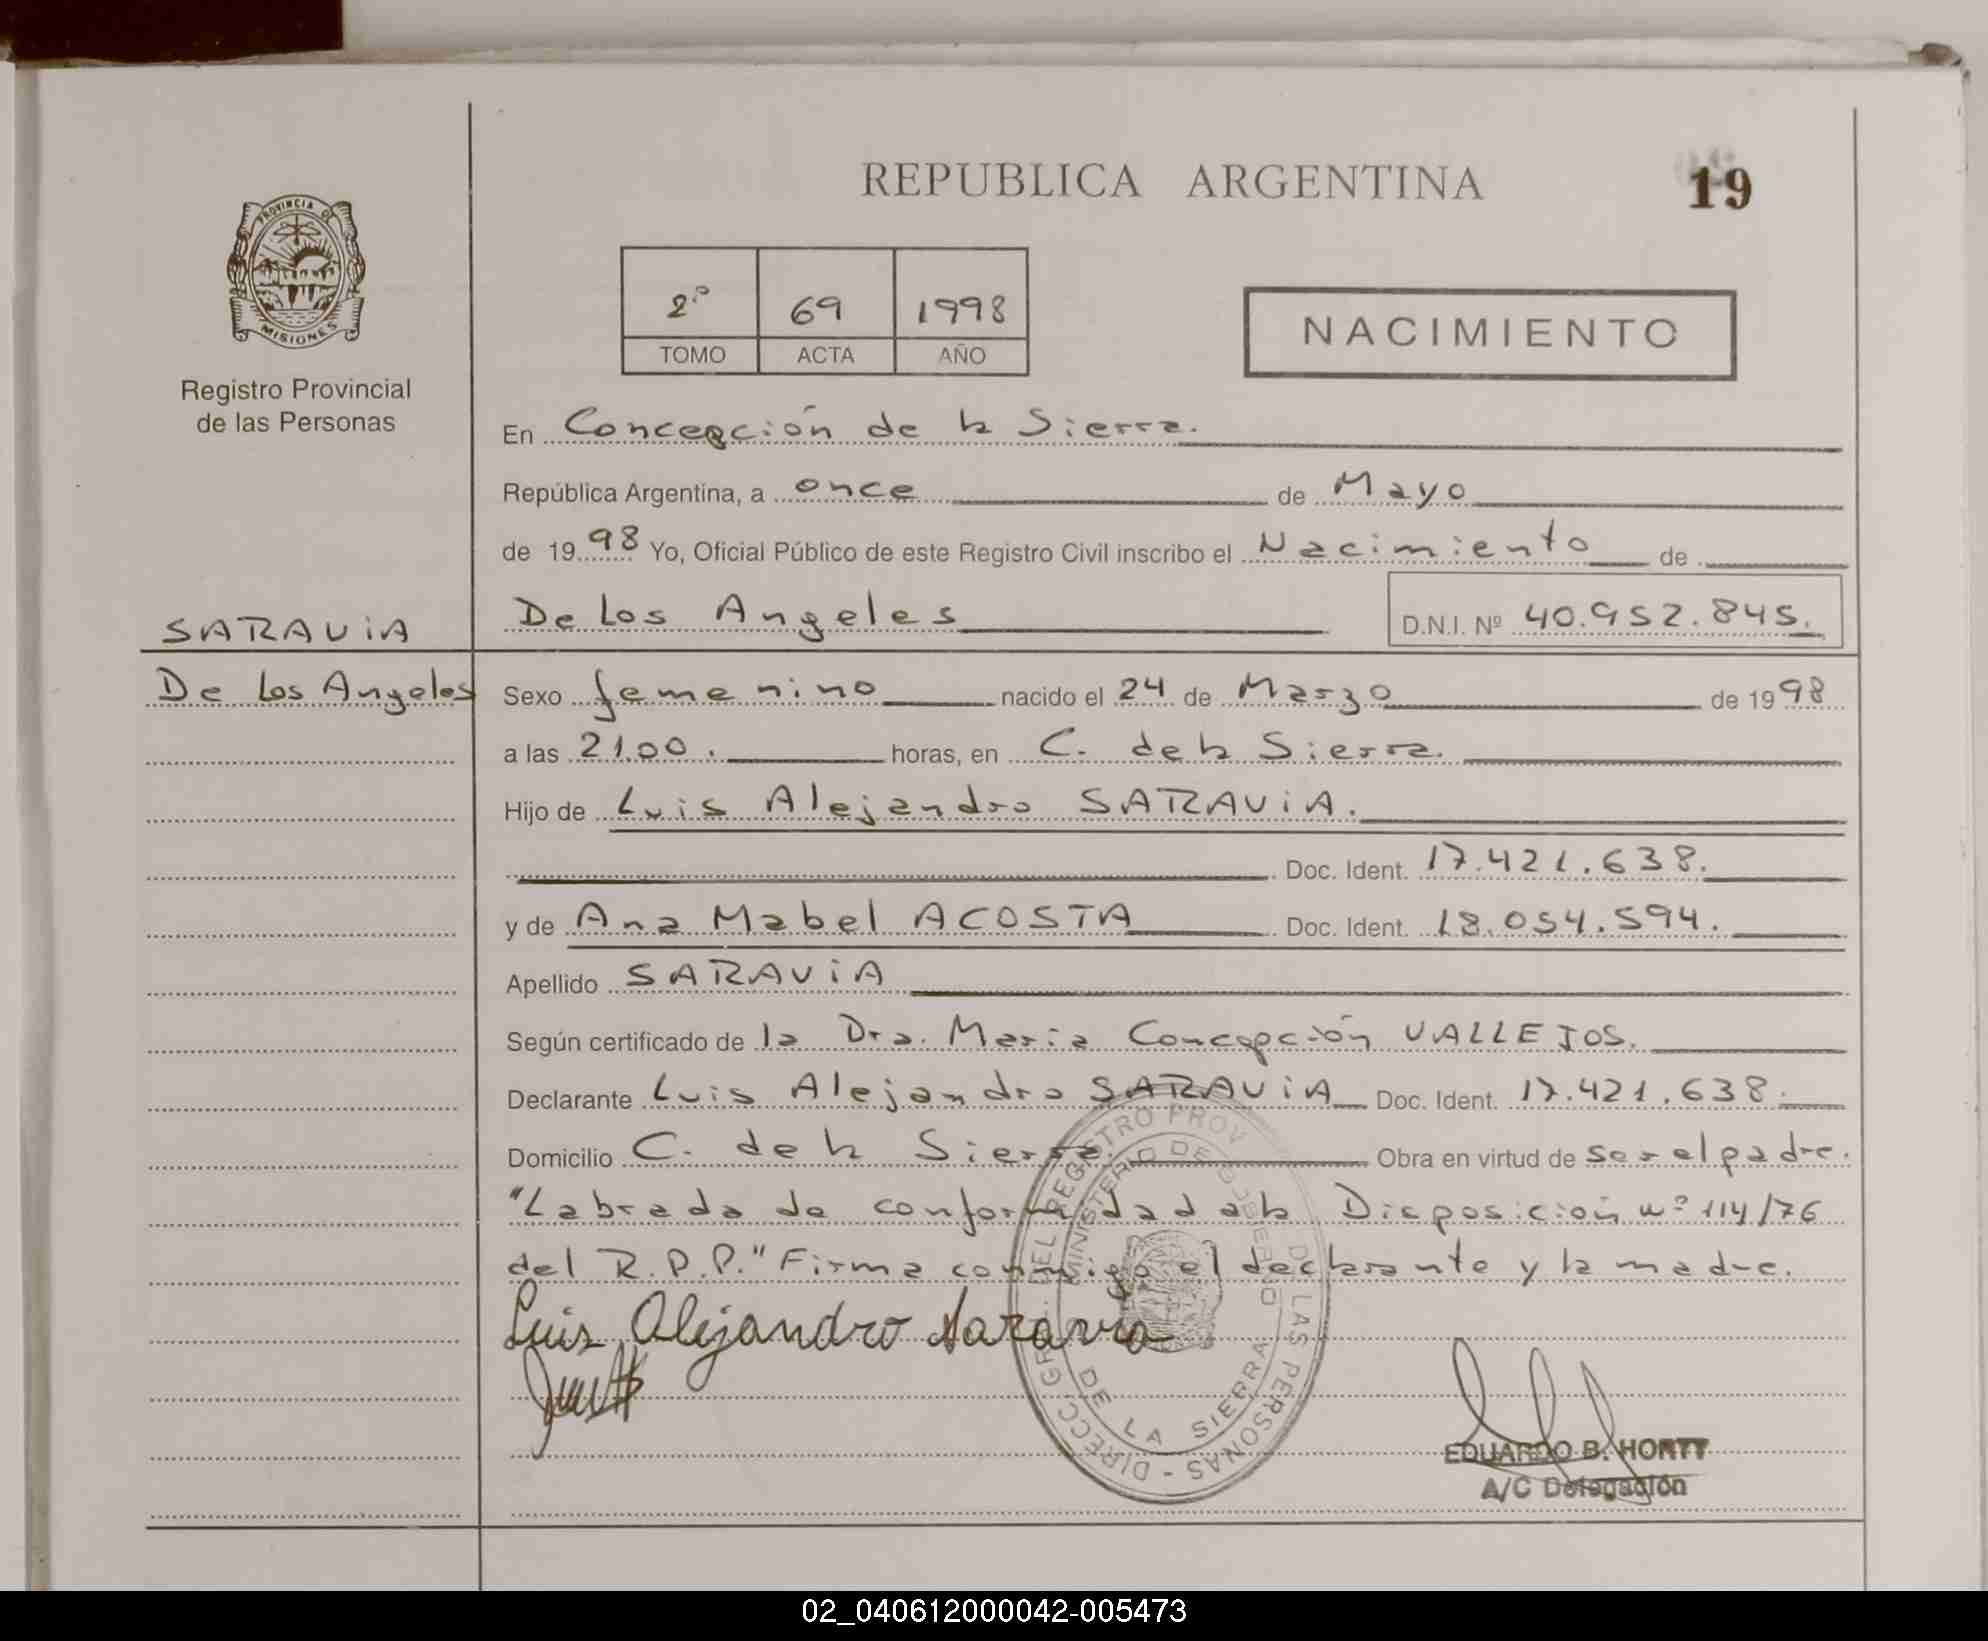 REPUBLICA ARGENTINA
19
PROVINCIA DE
MISIONES
Registro Provincial
de las Personas
2º 69 1998
TOMO ACTA AÑO
NACIMIENTO
En Concepción de la Sierra.
República Argentina, a once de Mayo
de 1998 Yo, Oficial Público de este Registro Civil inscribo el Nacimiento de
SARAViA
De Los Angeles D.N.I. Nº 40.952.845.
De Los Angeles
Sexo femenino nacido el 24 de Marzo de 1998
a las 21.00. horas, en C. de la Sierra.
Hijo de Luis Alejandro SARAViA.
Doc. Ident. 17.421.638.
y de Ana Mabel ACOSTA Doc. Ident. 18.054.594.
Apellido SARAViA
Según certificado de la Dra. Maria Concepción VALLEJOS.
Declarante Luis Alejandro SARAViA Doc. Ident. 17.421.638.
Domicilio C. de la Sierra. Obra en virtud de ser el padre.
"Labrada de conformidad a la Disposición nº 114/76
del R.P.P." Firma conmigo el declarante y la madre.
Luis Alejandro Saravia
DIRECC. GRL. DEL REGISTRO PROV. DE LAS PERSONAS -
MINISTERIO DE GOBIERNO
DE LA SIERRA
EDUARDO B. HORTT
A/C Delegación
02_040612000042-005473